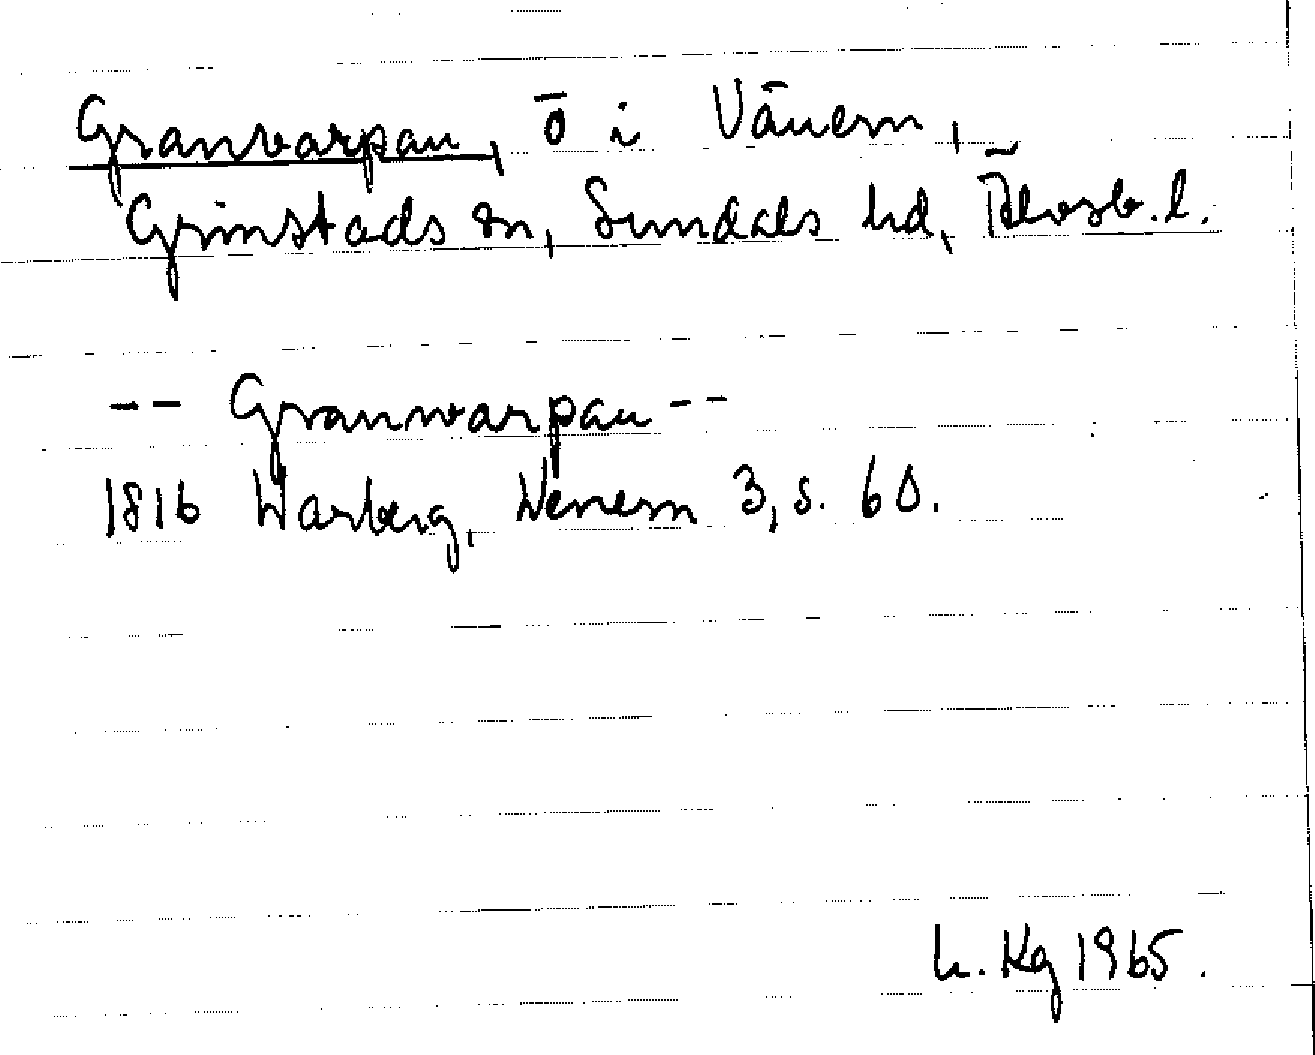 Granvarpan, ö i Vänern,
Grinstads sn, Sundals hd, Älvsb. l.
-- Granwarpan --
1816 Warberg, Wenern 3, s. 60.
L. Kg 1965.